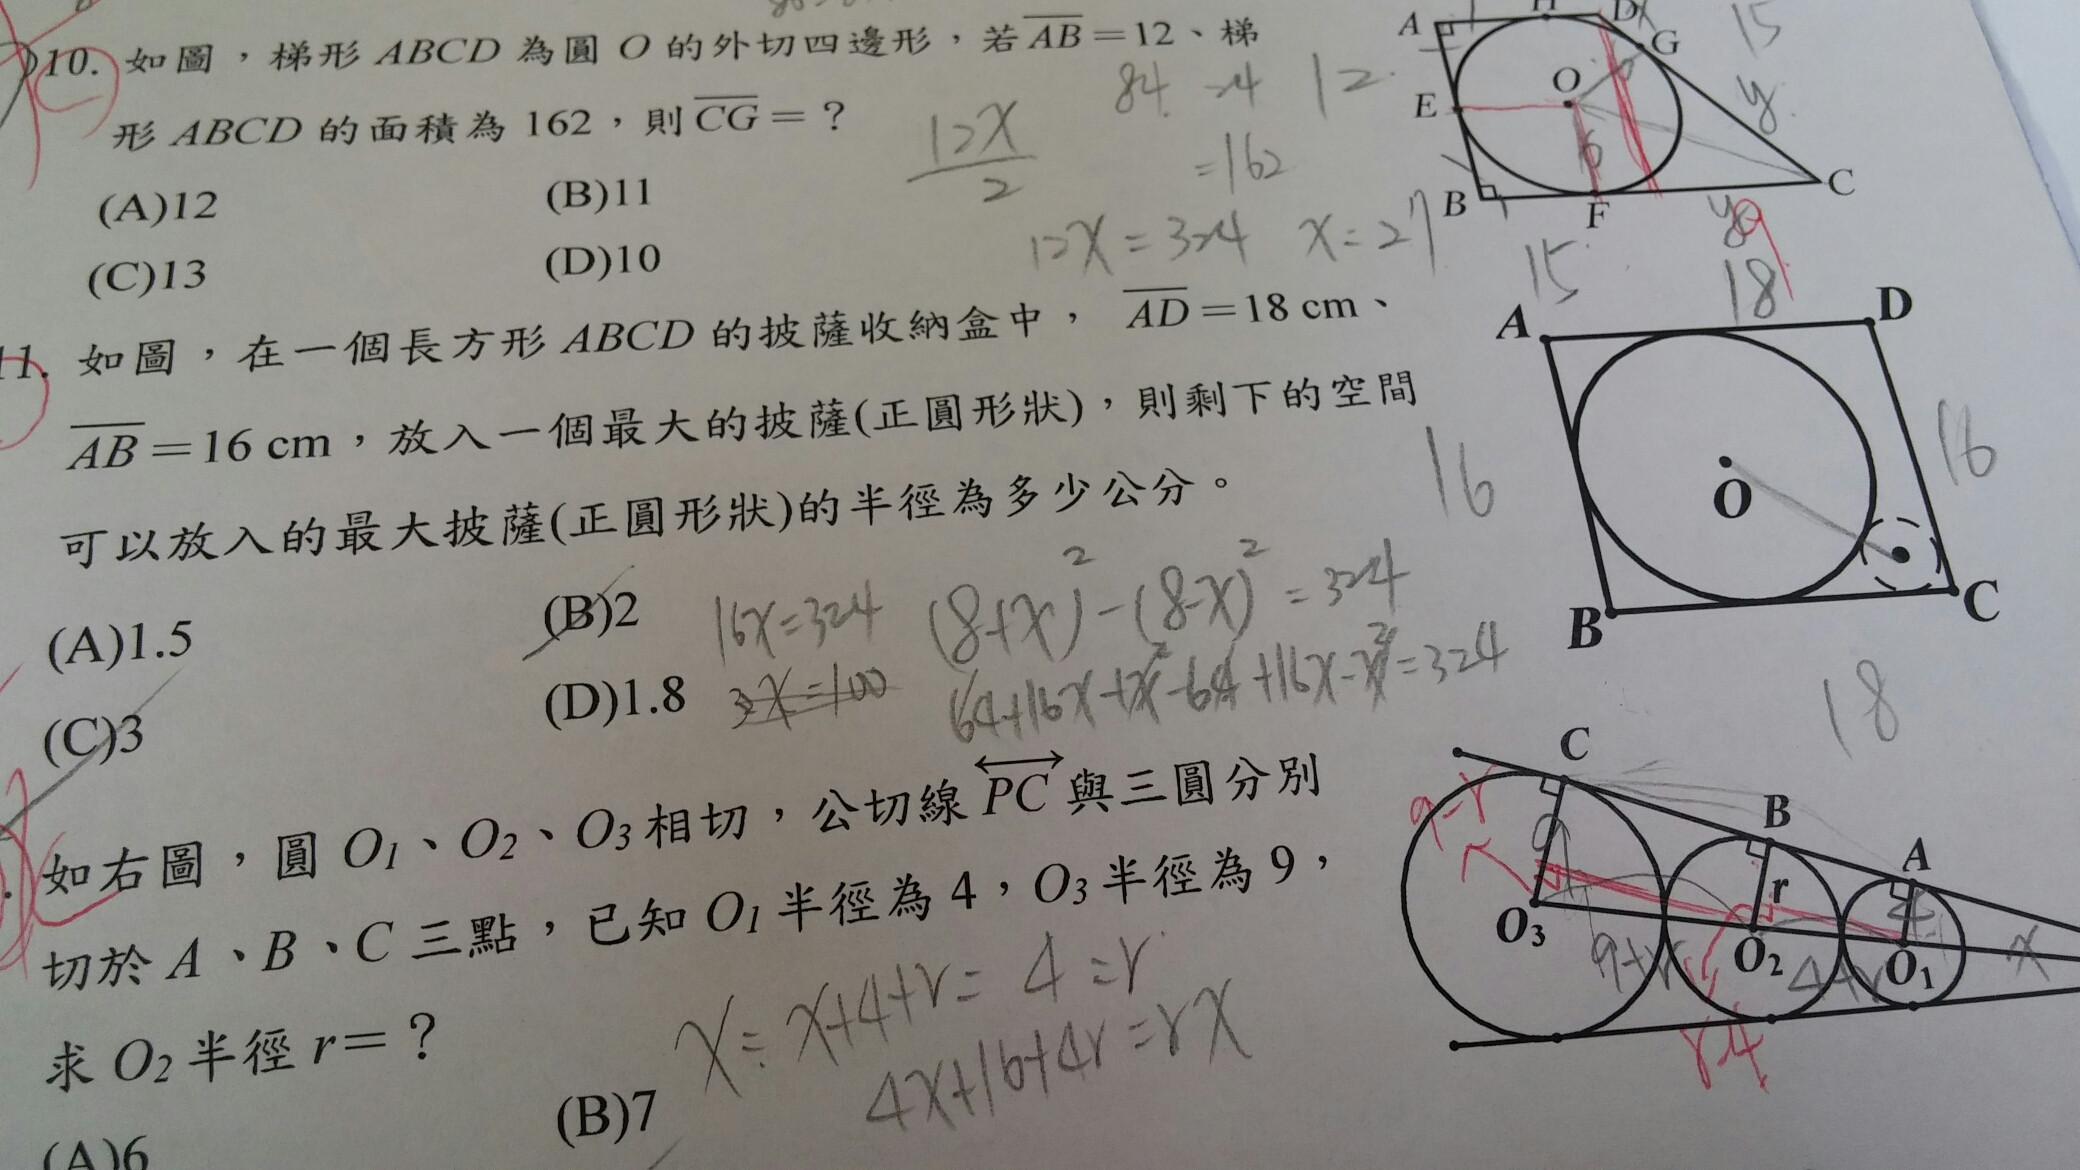 10. 如圖，梯形 ABCD 為圓 O 的外切四邊形，若 AB＝12、梯
形 ABCD 的面積為 162，則 CG＝？
(A)12 (B)11
(C)13 (D)10
12x/2
84
=162
12x=324 x=27
A H D G
O
E
B F C
6
15
y
y 9
15
18
11. 如圖，在一個長方形 ABCD 的披薩收納盒中， AD＝18 cm、
AB＝16 cm，放入一個最大的披薩(正圓形狀)，則剩下的空間
可以放入的最大披薩(正圓形狀)的半徑為多少公分。
(A)1.5 (B)2
(C)3 (D)1.8
16x=324 (8+x)²-(8-x)²=324
64+16x+x²-64+16x-x²=324
A D
O
B C
16
16
18
如右圖，圓 O1、O2、O3 相切，公切線 PC 與三圓分別
切於 A、B、C 三點，已知 O1 半徑為 4，O3 半徑為 9，
求 O2 半徑 r＝？
(A)6 (B)7
x:x+4+r=4=r
4x+16+4r=rx
C
B
A
r
O3 O2 O1
9-r
r
9
9+r
4+r
4
x
r-4